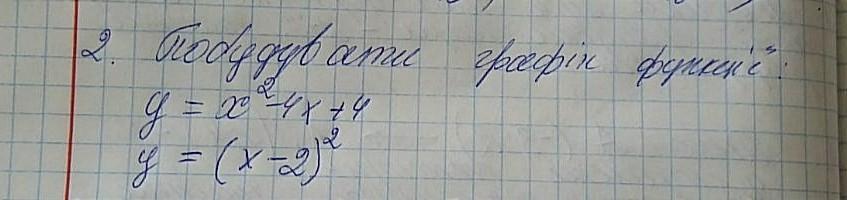 2. Побудувати графік функції:
y = x² - 4x + 4
y = (x - 2)²